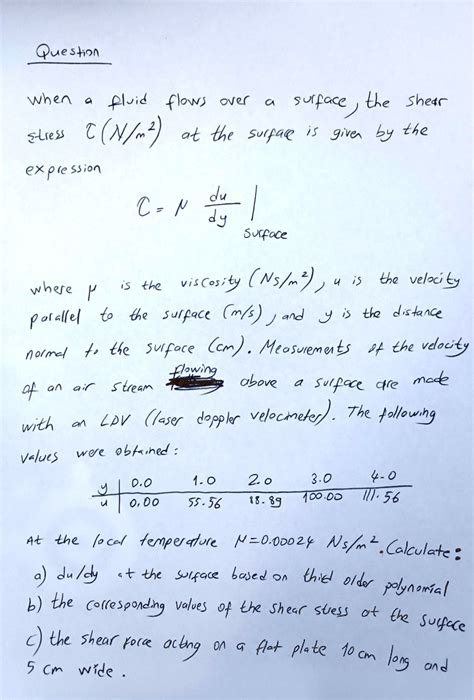 Question
When a fluid flows over a surface, the shear
stress τ (N/m²) at the surface is given by the
expression
τ = μ du/dy |surface
where μ is the viscosity (Ns/m²), u is the velocity
parallel to the surface (m/s), and y is the distance
normal to the surface (cm). Measurements of the velocity
of an air stream flowing above a surface are made
with an LDV (laser doppler velocimeter). The following
values were obtained:
y | 0.0 1.0 2.0 3.0 4.0
u | 0.00 55.56 88.89 100.00 111.56
At the local temperature μ=0.00024 Ns/m². Calculate:
a) du/dy at the surface based on third order polynomial
b) the corresponding values of the shear stress at the surface
c) the shear force acting on a flat plate 10 cm long and
5 cm wide.